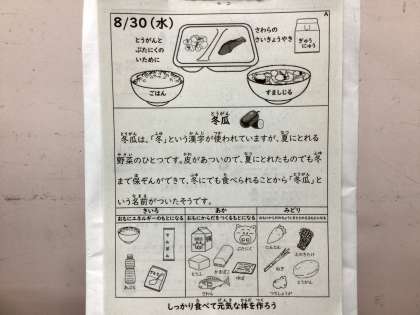 8/30(水)
A
とうがんと
ぶたにくの
いために
さわらの
さいきょうやき
ぎゅう
にゅう
ごはん
すましじる
とうがん
冬瓜
冬瓜は、「冬」という漢字が使われていますが、夏にとれる
野菜のひとつです。皮があついので、夏にとれたものでも冬
まで保ぞんができて、冬にでも食べられることから「冬瓜」と
いう名前がついたそうです。
きいろ
あか
みどり
おもにエネルギーのもとになる
おもにからだをつくるもとになる
ぶたにく
にんじん
とうふ
かまぼこ
ねぎ
とうがん
あぶら
さわら
しっかり食べて元気な体を作ろう